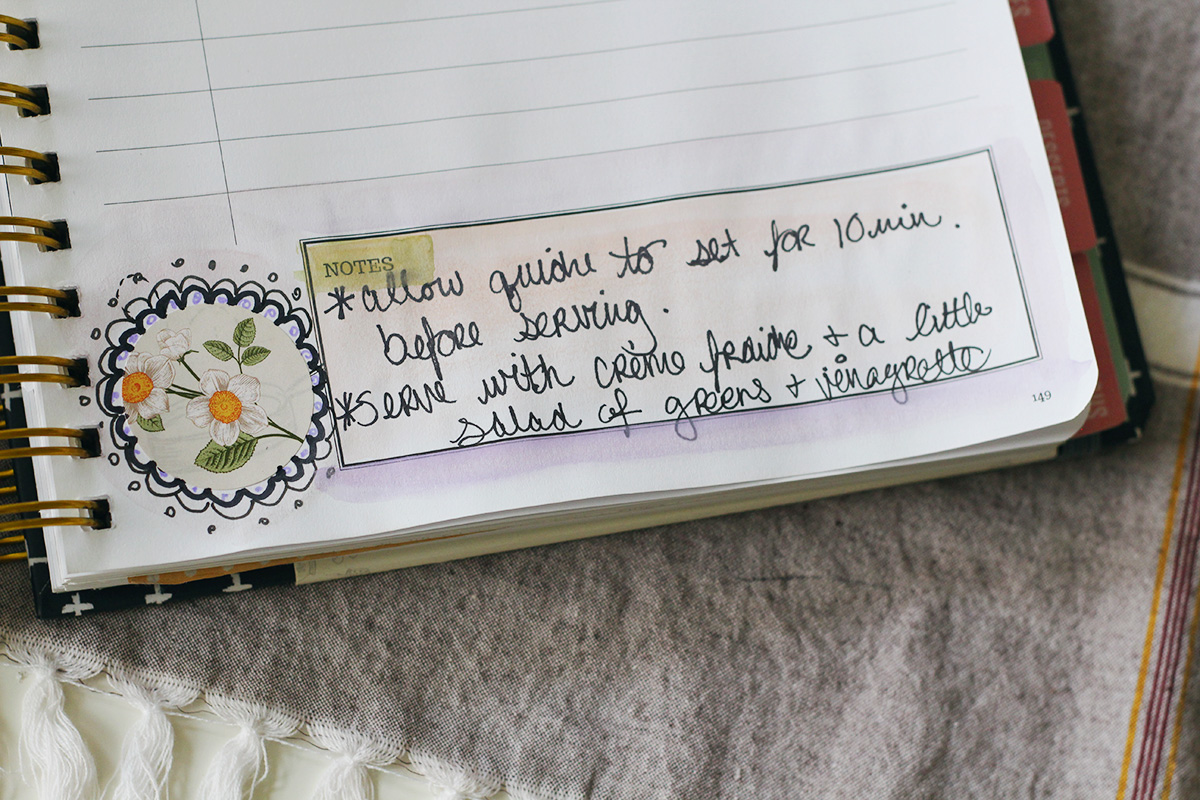 NOTES
*allow quiche to set for 10 min.
before serving.
*serve with crème fraiche + a little
salad of greens + vinagrette
149